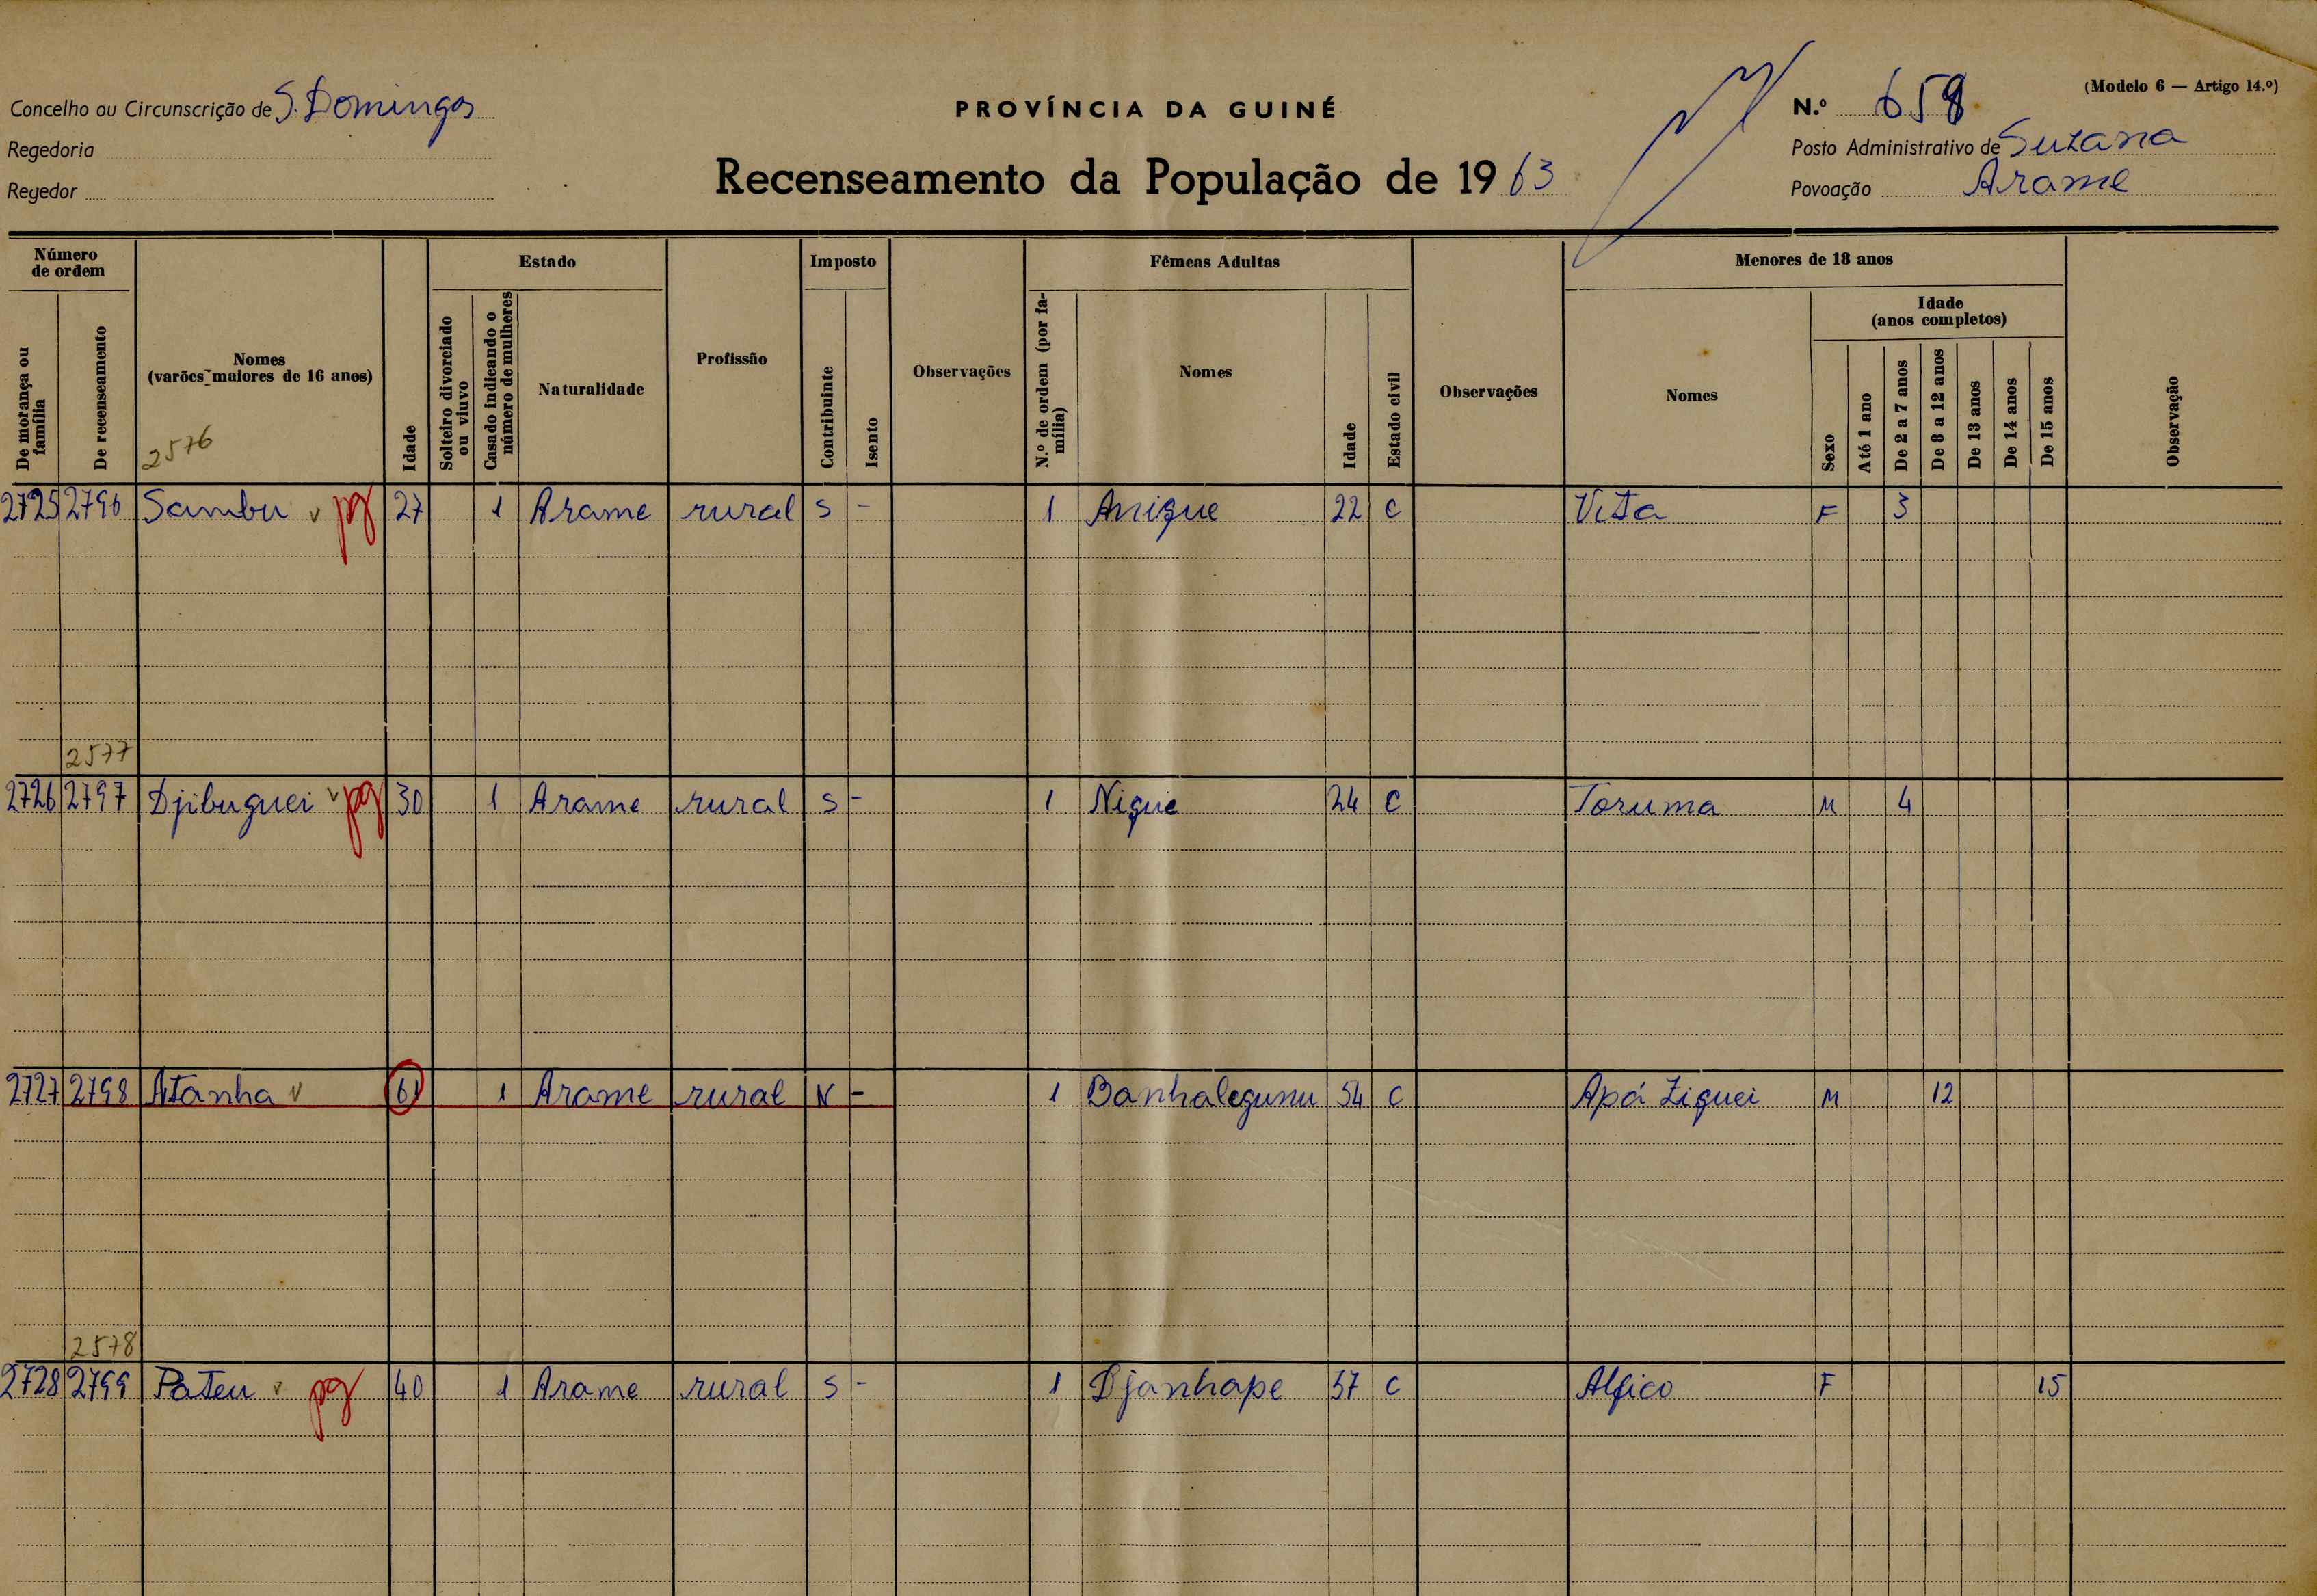 (Modelo 6 — Artigo 14.º)
Concelho ou Circunscrição de S. Domingos
PROVÍNCIA DA GUINÉ
N.º 658
Regedoria
Posto Administrativo de Suzana
Regedor
Recenseamento da População de 1963
Povoação Arame
Número de ordem
De morança ou família
De recenseamento
Nomes
(varões maiores de 16 anos)
2576
Idade
Estado
Solteiro divorciado ou viuvo
Casado indicando o número de mulheres
Naturalidade
Profissão
Imposto
Contribuinte
Isento
Observações
Fêmeas Adultas
N.º de ordem (por família)
Nomes
Idade
Estado civil
Observações
Menores de 18 anos
Nomes
Sexo
Idade
(anos completos)
Até 1 ano
De 2 a 7 anos
De 8 a 12 anos
De 13 anos
De 14 anos
De 15 anos
Observação
2725 2796 Sambu v pg 27 1 Arame rural S - 1 Anique 22 C Vita F 3
2577
2726 2797 Djibuguei v pg 30 1 Arame rural S - 1 Nique 24 C Toruma M 4
2727 2798 Atanha v 61 1 Arame rural N - 1 Banhalegunu 54 C Apá Ziquei M 12
2578
2728 2799 Pateu v pg 40 1 Arame rural S - 1 Djanhape 37 C Alfico F 15